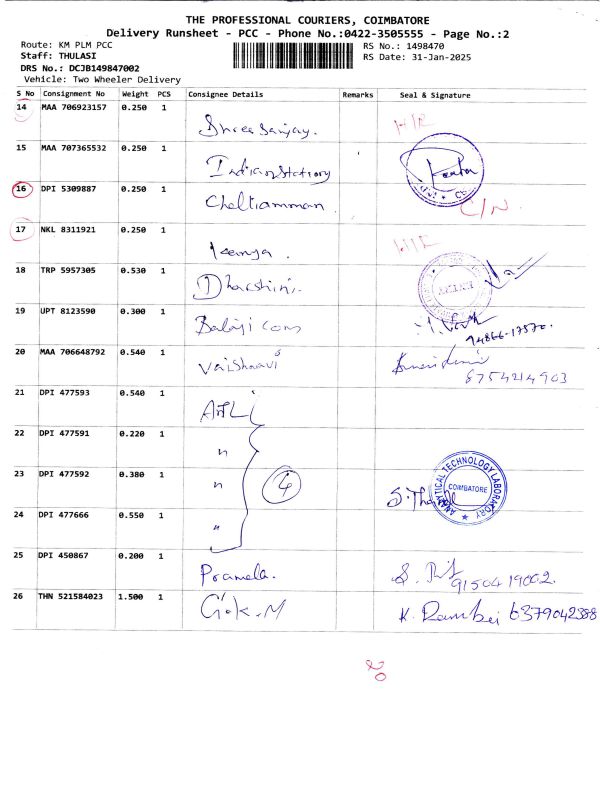 THE PROFESSIONAL COURIERS, COIMBATORE
Delivery Runsheet - PCC - Phone No.:0422-3505555 - Page No.:2
Route: KM PLM PCC
RS No.: 1498470
Staff: THULASI
RS Date: 31-Jan-2025
DRS No.: DCJB149847002
Vehicle: Two Wheeler Delivery
S No Consignment No Weight PCS Consignee Details Remarks Seal & Signature
14 MAA 706923157 0.250 1 Shree Sanjay.
15 MAA 707365532 0.250 1 Indian Stationary
16 DPI 5309887 0.250 1 C/N.
17 NKL 8311921 0.250 1
18 TRP 5957305 0.530 1 Dharshini.
19 UPT 8123590 0.300 1 Balaji Cons
94866-17570.
20 MAA 706648792 0.540 1 Vaishnavi
8754214903
21 DPI 477593 0.540 1
22 DPI 477591 0.220 1 "
23 DPI 477592 0.380 1 " 4
ANALYTICAL TECHNOLOGY LABORATORY
COIMBATORE
24 DPI 477666 0.550 1 "
25 DPI 450867 0.200 1 Pramela.
9150419002.
26 THN 521584023 1.500 1 G.K.M K. 6379042388
20